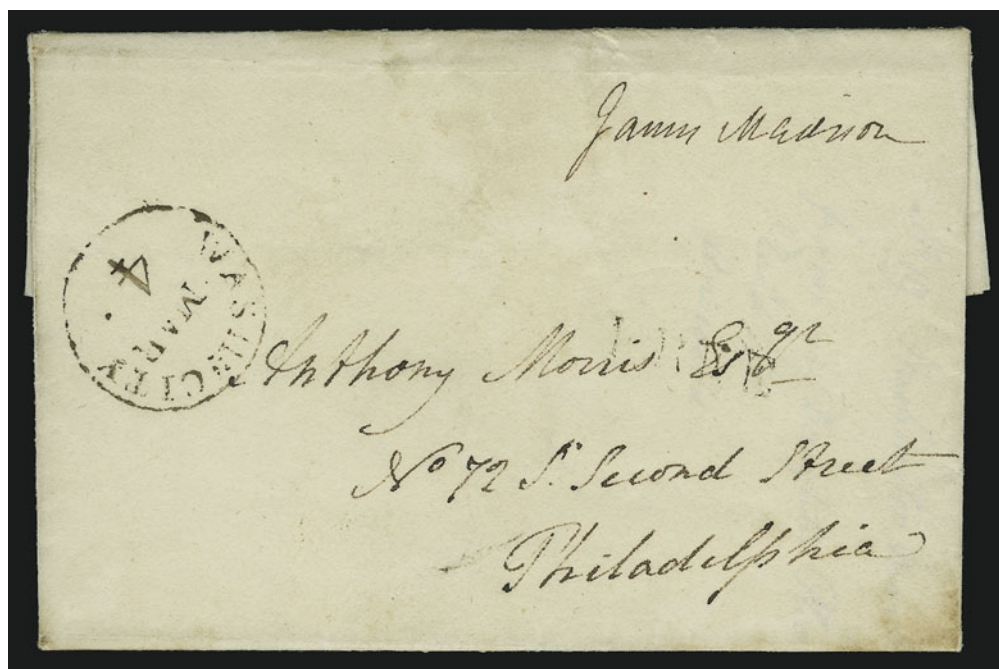 James Madison
WASHn. CITY
MAR
4
Anthony Morris Esqr
No 72 S. Second Street
Philadelphia